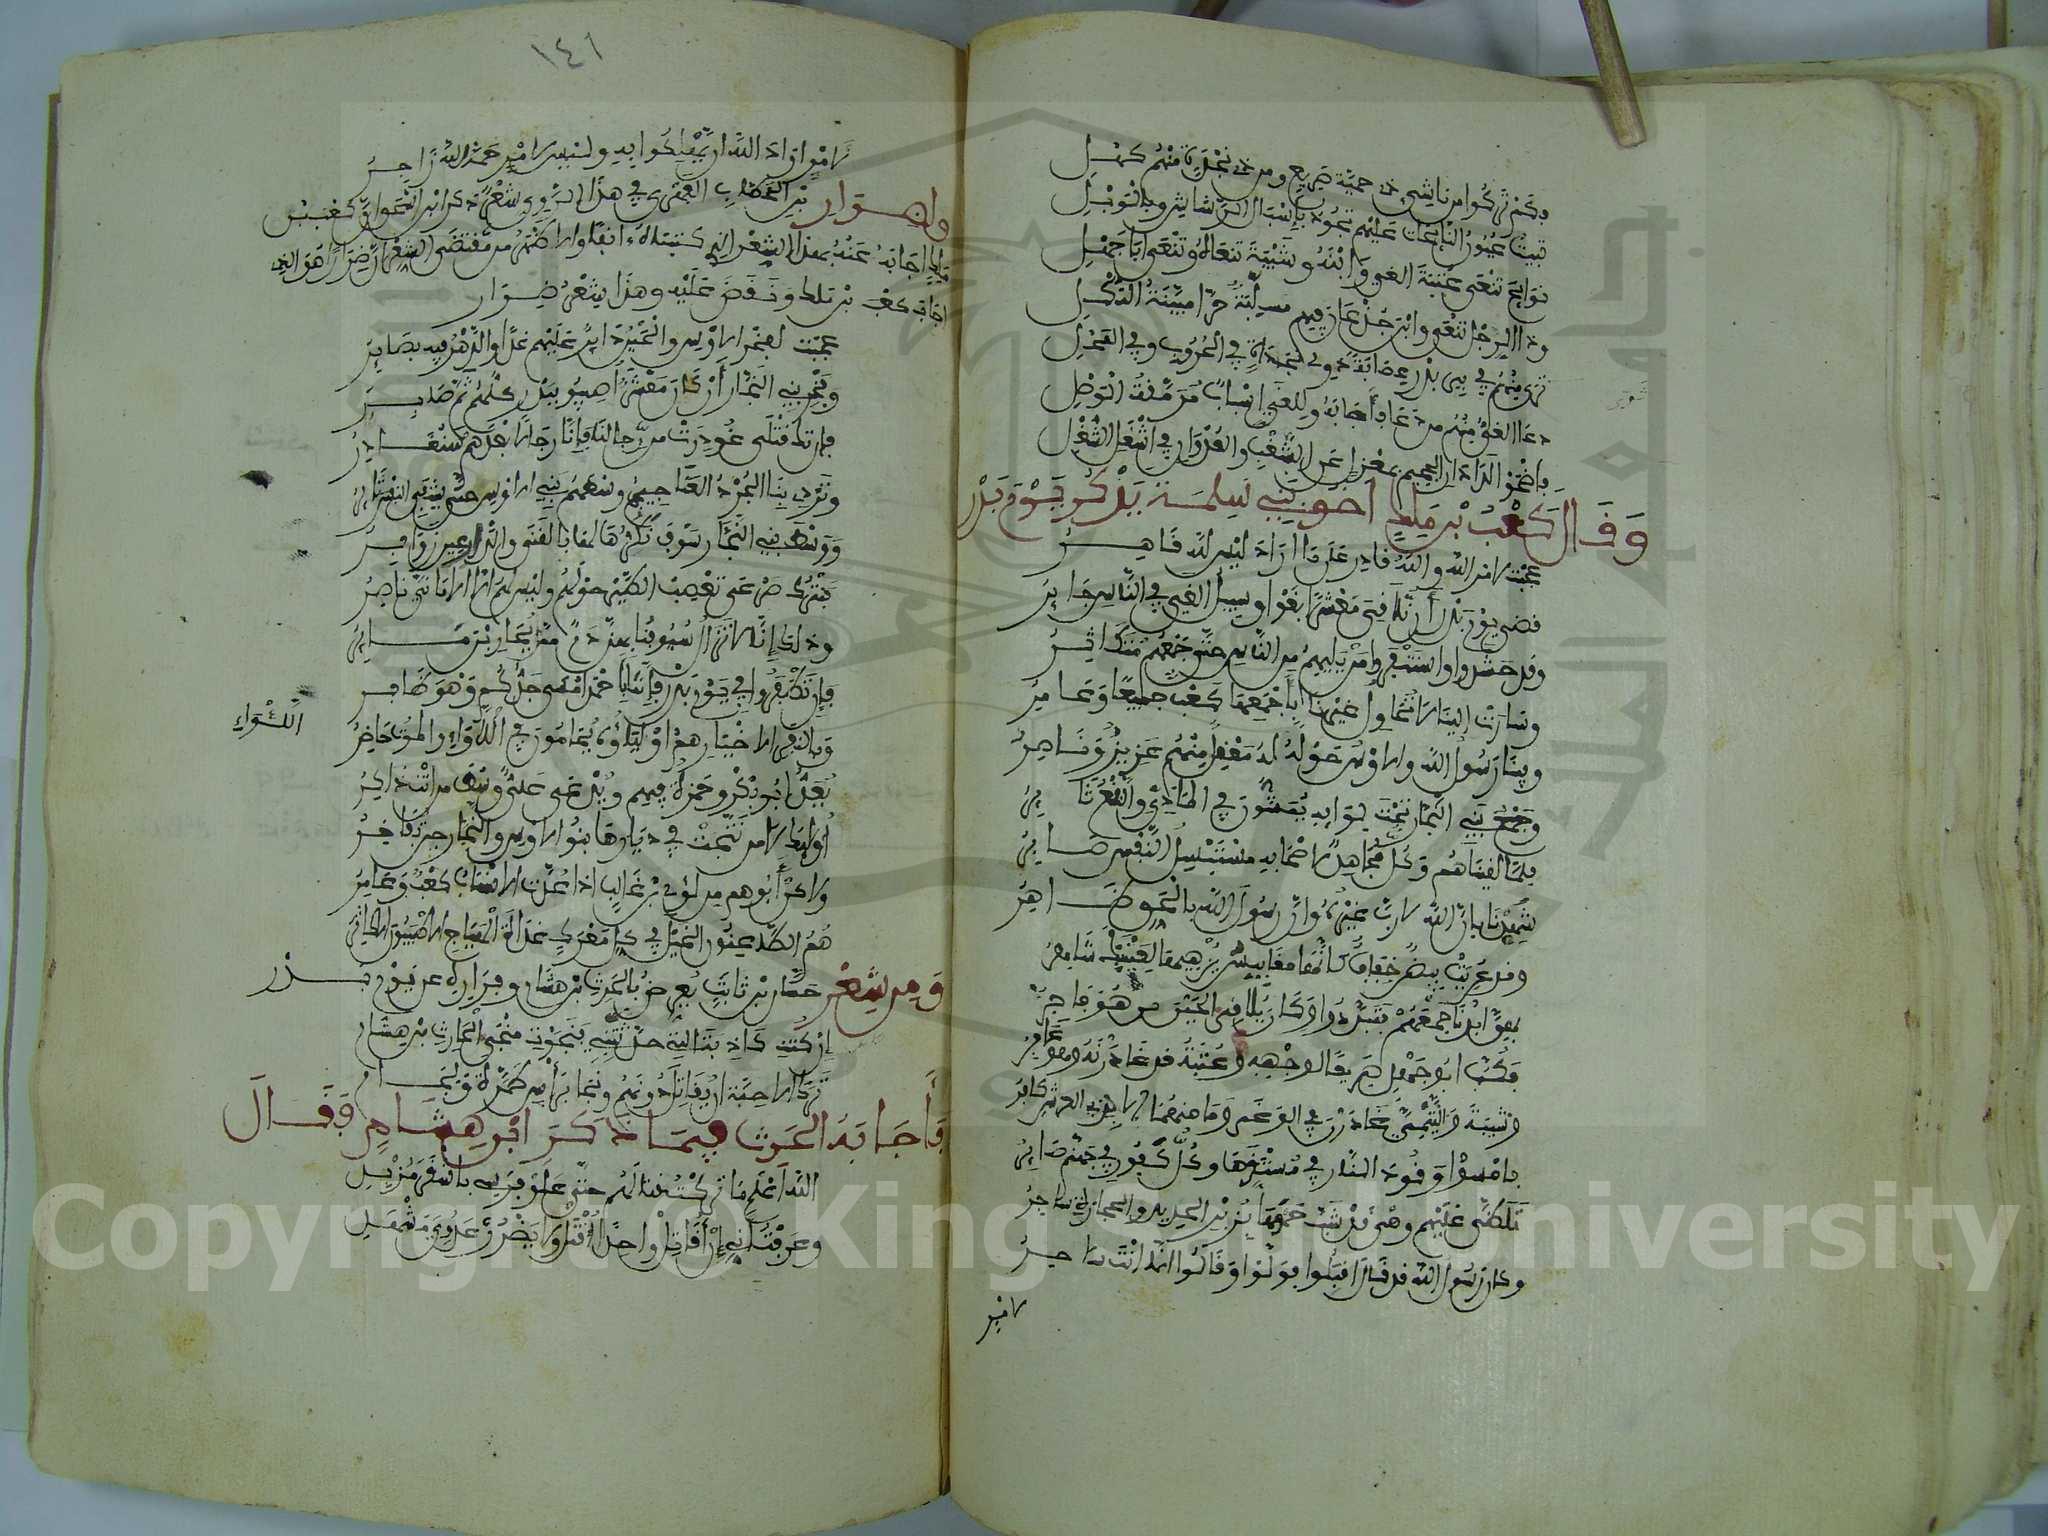 وكم تركوا من ناشئ ذي حمية صريع ومن ذي نجدة منهم كهل
تبيت عيون النائحات عليهم تجود بإسبال الرشاش وبالوبل
نوائح تنعى عتبة الغي وابنه وشيبة تنعاه وتنعى أبا جهل
وذا الرجل تنعى وابن جدعان فيهم مسلبة حرى مبينة الثكل
ترى منهم في بئر بدر عصابة ذوي نجدات في الحروب وفي المحل
دعا الغي منهم من دعا فأجابه وللغي أسباب مرمقة الوصل
فأضحوا لدى دار الجحيم بمعزل عن الشغب والعدوان في أشغل الشغل
وقال كعب بن ملك أحد بني سلمة يذكر يوم بدر
عجبت لأمر الله والله قادر على ما أراد ليس لله قاهر
قضى يوم بدر أن نلاقي معشرا بغوا وسبيل الغي في الناس جائر
وقد حشدوا واستنفروا من يليهم من الناس حتى جمعهم متكاثر
وسارت إلينا لا تحاول غيرنا بأجمعها كعب جميعا وعامر
وفينا رسول الله والأوس حوله له معقل منهم عزيز وناصر
وجمع بني النجار تحت لوائه يمشون في الماذي والنقع ثائر
فلما لقيناهم وكل مجاهد لأصحابه مستبسل النفس صابر
شهدنا بأن الله لا رب غيره وأن رسول الله بالحق ظاهر
وقد عريت بيض خفاف كأنها مقابيس يزهيها لعينيك شاهر
بهن أبدنا جمعهم فتبددوا وكان يلاقي الحين من هو فاجر
فكب أبو جهل صريعا لوجهه وعتبة قد غادرنه وهو عاثر
وشيبة والتيمي غادرن في الوغى وما منهما إلا بذي العرش كافر
فأمسوا وقود النار في مستقرها وكل كفور في جهنم صائر
تلظى عليهم وهي قد شب حميها بزبر الحديد والحجارة ساجر
وكان رسول الله قد قال أقبلوا فولوا وقالوا إنما أنت ساحر
لأمر
١٤١
لأمر أراد الله أن يهلكوا به وليس لأمر حمه الله زاجر
ولضرار بن الخطاب الفهري في هذا الروي شعر ذكر ابن إسحاق كعب بن
أجابه عنه بهذا الشعر الذي كتبناه آنفا والأظهر من مقتضى الشعر أن ضرارا هو الذي
أجاب كعب بن ملك ونقض عليه وهذا شعر ضرار
عجبت لفخر الأوس والحين دائر عليهم غدا والدهر فيه بصائر
وفخر بني النجار أن كان معشر أصيبوا ببدر كلهم ثم صابر
فإن تك قتلى غودرت من رجالنا فإنا رجال بعدهم سنغادر
وتردي بنا الجرد العناجيج وسطكم بني الأوس حتى يشفي النفس ثائر
ووسط بني النجار سوف نكرها لها بالقنا والدارعين زوافر
فنترك صرعى تعصب الطير حولهم وليس لهم إلا الأماني ناصر
وذلك أنا لا تزال سيوفنا بهن دم ممن يحاربن مائر
فإن تظفروا في يوم بدر فإنما بأحمد أمسى جدكم وهو ظاهر
وبالنفر الأخيار هم أولياؤه يحامون في اللأواء والموت حاضر
اللأواء
يعد أبو بكر وحمزة فيهم ويدعى علي وسط من أنت ذاكر
أولئك لا من نتجت في ديارها بنو الأوس والنجار حين تفاخر
ولكن أبوهم من لؤي بن غالب إذا عدت الأنساب كعب وعامر
هم الطاعنون الخيل في كل معرك غداة الهياج الأطيبون الأكاثر
ومن شعر حسان بن ثابت يعرض بالحرث بن هشام وفراره عن يوم بدر
إن كنت كاذبة التي حدثتني فنجوت منجى الحارث بن هشام
ترك الأحبة أن يقاتل دونهم ونجا برأس طمرة ولجام
فأجابه الحرث فيما ذكر ابن هشام فقال
الله أعلم ما تركت قتالهم حتى علوا فرسي بأشقر مزبد
وعرفت أني إن أقاتل واحدا أقتل ولا يضرر عدوي مشهدي
Copyright © King Saud University